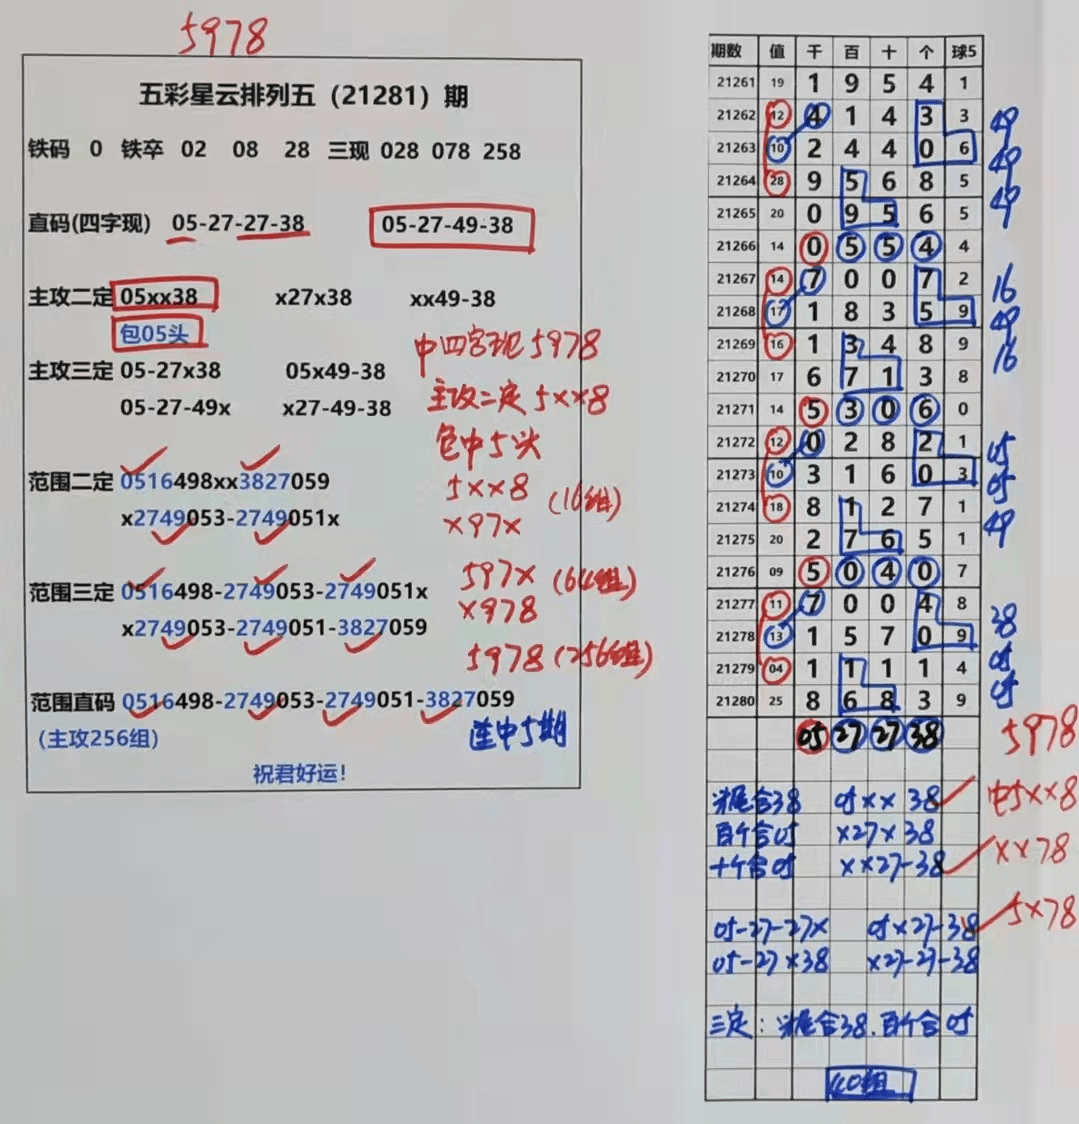 5978
五彩星云排列五（21281）期
铁码 0 铁卒 02 08 28 三现 028 078 258
直码(四字现) 05-27-27-38 05-27-49-38
主攻二定 05xx38 x27x38 xx49-38
包05头
中四字现5978
主攻三定 05-27x38 05x49-38
主攻二定5xx8
05-27-49x x27-49-38
包中5头
范围二定 0516498xx3827059
5xx8 (16组)
x2749053-2749051x
x97x
范围三定 0516498-2749053-2749051x
597x (64组)
x978
x2749053-2749051-3827059
5978 (256组)
范围直码 0516498-2749053-2749051-3827059
(主攻256组)
连中5期
祝君好运!
期数 值 千 百 十 个 球5
21261 19 1 9 5 4 1
21262 12 4 1 4 3 3 49
21263 10 2 4 4 0 6 49
21264 28 9 5 6 8 5 49
21265 20 0 9 5 6 5
21266 14 0 5 5 4 4
21267 14 7 0 0 7 2 16
21268 17 1 8 3 5 9 49
21269 16 1 3 4 8 9 16
21270 17 6 7 1 3 8
21271 14 5 3 0 6 0
21272 12 0 2 8 2 1 05
21273 10 3 1 6 0 3 05
21274 18 8 1 2 7 1 49
21275 20 2 7 6 5 1
21276 09 5 0 4 0 7
21277 11 7 0 0 4 8 38
21278 13 1 5 7 0 9 05
21279 04 1 1 1 1 4 05
21280 25 8 6 8 3 9
05 27 27 38 5978
头尾合38 05xx38 中5xx8
百个合05 x27x38
十个合05 xx27-38 xx78
05-27-27x 05x27-38 5x78
05-27x38 x27-27-38
三定：头尾合38.百个合05
40组